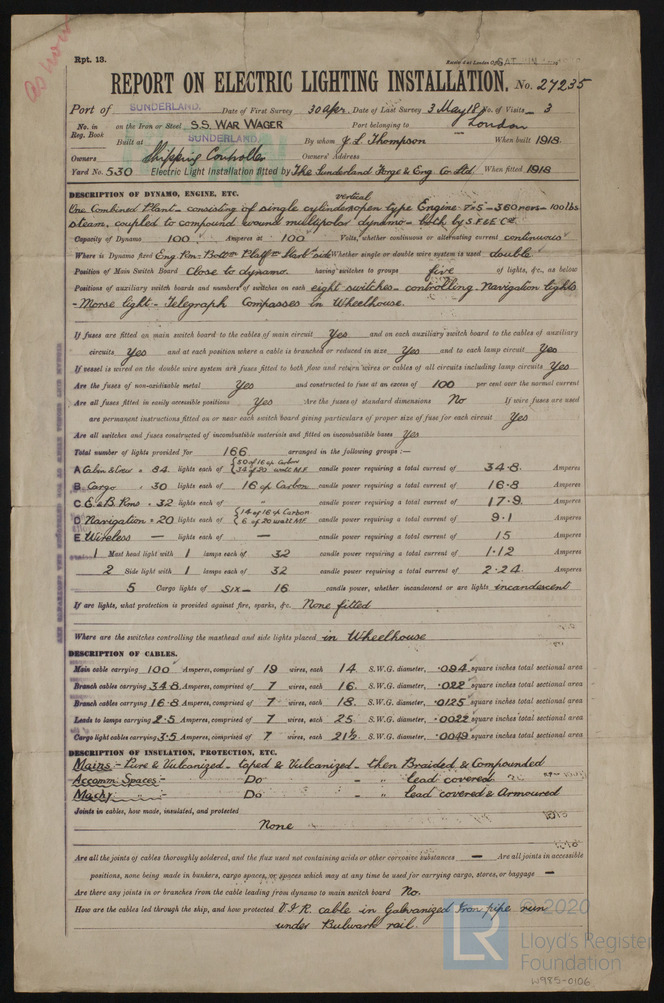 as now
Rpt. 13.
REPORT ON ELECTRIC LIGHTING INSTALLATION. No. 27235
Port of SUNDERLAND. Date of First Survey 30 Apr. Date of Last Survey 3 May 18 No. of Visits 3
No. in Reg. Book on the Iron or Steel S.S. WAR WAGER Port belonging to London
Built at SUNDERLAND. By whom J. L. Thompson When built 1918
Owners Shipping Controller Owners' Address
Yard No. 530 Electric Light Installation fitted by The Sunderland Forge & Eng. Co Ltd When fitted 1918
DESCRIPTION OF DYNAMO, ENGINE, ETC.
vertical
One Combined Plant - consisting of single cylinder open type Engine 7x5 - 360 revs - 100 lbs
steam, coupled to compound wound multipolar dynamo - both by S.F & E. Co
Capacity of Dynamo 100 Amperes at 100 Volts, whether continuous or alternating current continuous
Where is Dynamo fixed Eng. Rm. Bottom Platfm Starbd side Whether single or double wire system is used double
Position of Main Switch Board Close to dynamo. having switches to groups five of lights, &c., as below
Positions of auxiliary switch boards and numbers of switches on each eight switches - controlling - Navigation lights
- Morse light - Telegraph Compasses in Wheelhouse.
If fuses are fitted on main switch board to the cables of main circuit Yes and on each auxiliary switch board to the cables of auxiliary
circuits Yes and at each position where a cable is branched or reduced in size Yes and to each lamp circuit Yes
If vessel is wired on the double wire system are fuses fitted to both flow and return wires or cables of all circuits including lamp circuits Yes
Are the fuses of non-oxidizable metal Yes and constructed to fuse at an excess of 100 per cent over the normal current
Are all fuses fitted in easily accessible positions Yes Are the fuses of standard dimensions No If wire fuses are used
are permanent instructions fitted on or near each switch board giving particulars of proper size of fuse for each circuit Yes
Are all switches and fuses constructed of incombustible materials and fitted on incombustible bases Yes
Total number of lights provided for 166 arranged in the following groups :—
A Cabin & Crew 84 lights each of {50 of 16 cp Carbon 34 of 20 watt M.F. candle power requiring a total current of 34.8. Amperes
B Cargo 30 lights each of 16 cp Carbon candle power requiring a total current of 16.8 Amperes
C E. & B. Rms 32 lights each of " candle power requiring a total current of 17.9. Amperes
D Navigation 20 lights each of {14 of 16 cp Carbon 6 of 20 watt M.F. candle power requiring a total current of 9.1 Amperes
E Wireless — lights each of — candle power requiring a total current of 15 Amperes
1 Mast head light with 1 lamps each of 32 candle power requiring a total current of 1.12 Amperes
2 Side light with 1 lamps each of 32 candle power requiring a total current of 2.24 Amperes
5 Cargo lights of Six - 16 candle power, whether incandescent or arc lights incandescent
If arc lights, what protection is provided against fire, sparks, &c. None fitted
Where are the switches controlling the masthead and side lights placed in Wheelhouse
DESCRIPTION OF CABLES.
Main cable carrying 100 Amperes, comprised of 19 wires, each 14 S.W.G. diameter, .094 square inches total sectional area
Branch cables carrying 34.8 Amperes, comprised of 7 wires, each 16. S.W.G. diameter, .022 square inches total sectional area
Branch cables carrying 16.8 Amperes, comprised of 7 wires, each 18. S.W.G. diameter, .0125 square inches total sectional area
Leads to lamps carrying 2.5 Amperes, comprised of 7 wires, each 25 S.W.G. diameter, .0022 square inches total sectional area
Cargo light cables carrying 3.5 Amperes, comprised of 7 wires, each 21½ S.W.G. diameter, .0049 square inches total sectional area
DESCRIPTION OF INSULATION, PROTECTION, ETC.
Mains - Pure & Vulcanized - taped & Vulcanized - then Braided & Compounded
Accomm. Spaces - Do - " lead covered
Machy " - Do - " lead covered & Armoured
Joints in cables, how made, insulated, and protected
None
Are all the joints of cables thoroughly soldered, and the flux used not containing acids or other corrosive substances — Are all joints in accessible
positions, none being made in bunkers, cargo spaces, or spaces which may at any time be used for carrying cargo, stores, or baggage —
Are there any joints in or branches from the cable leading from dynamo to main switch board No.
How are the cables led through the ship, and how protected V.I.R. cable in Galvanized Iron pipe run
under Bulwark rail.
© 2020
LR
Lloyd's Register
Foundation
W985-0106